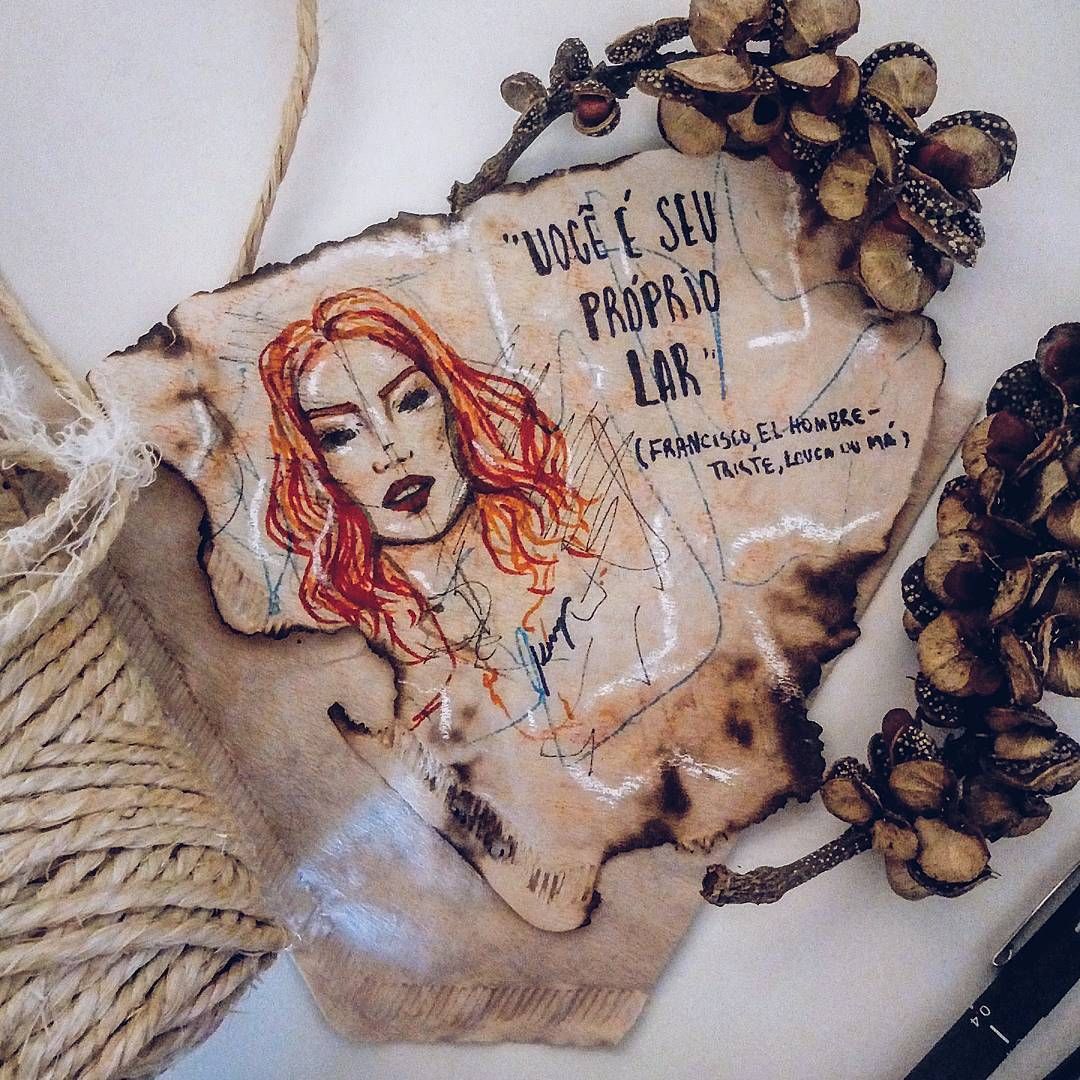 "VOCÊ É SEU
PRÓPRIO
LAR"
(FRANCISCO, EL HOMBRE -
TRISTE, LOUCA OU MÁ)
0.4